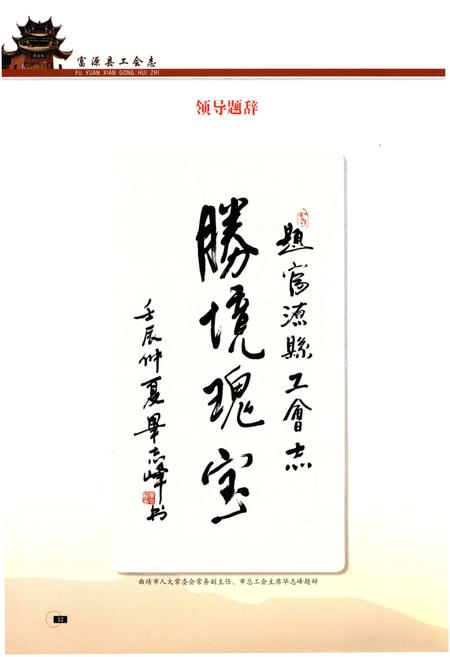 富源县工会志
FU YUAN XIAN GONG HUI ZHI
领导题辞
題富源縣工會志
勝境瑰宝
壬辰仲夏畢志峰书
曲靖市人大常委会常务副主任、市总工会主席毕志峰题辞
12